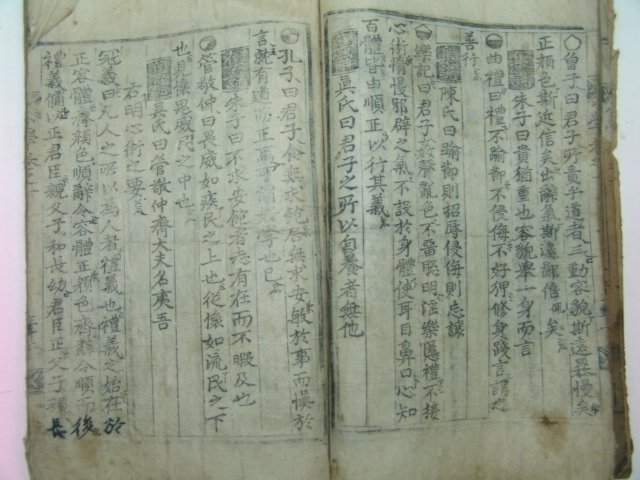 曾子曰君子所貴乎道者三動容貌斯遠暴慢矣
正顔色斯近信矣出辭氣斯遠鄙倍矣
朱子曰貴猶重也容貌舉一身而言
曲禮曰禮不踰節不侵侮不好狎修身踐言謂之
善行
陳氏曰踰節則招辱侵侮則忘讓
樂記曰君子姦聲亂色不留聰明淫樂慝禮不接
心術惰慢邪辟之氣不設於身體使耳目鼻口心知
百體皆由順正以行其義
眞氏曰君子之所以自養者無他
孔子曰君子食無求飽居無求安敏於事而愼於
言就有道而正焉可謂好學也已
朱子曰不求安飽者志有在而不暇及也
管敬仲曰畏威如疾民之上也從懷如流民之下
也見懷思威民之中也
吳氏曰管敬仲齊大夫名夷吾
右明心術之要
冠義曰凡人之所以爲人者禮義也禮義之始在於
正容體齊顔色順辭令容體正顔色齊辭令順而後
禮義備以正君臣親父子和長幼君臣正父子親長